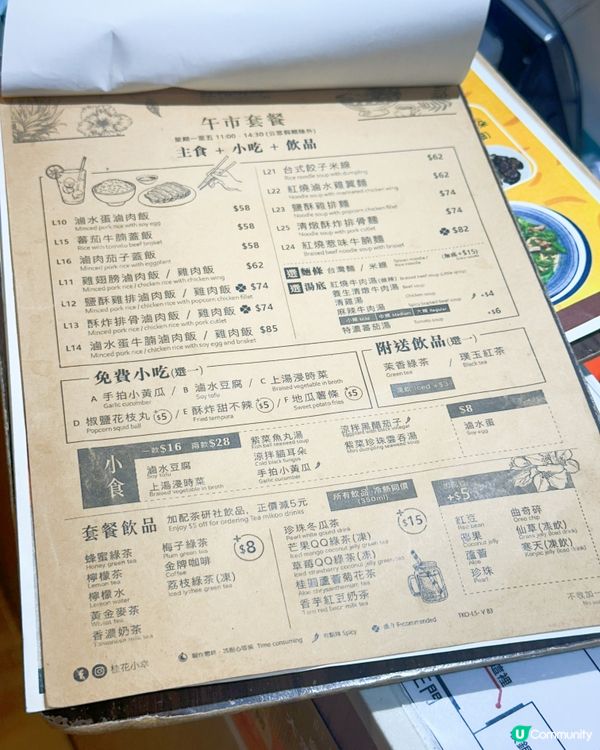 午市套餐
星期一至五 11:00 - 14:30 (公眾假期除外)
主食 + 小吃 + 飲品
L10 滷水蛋滷肉飯 $58
Minced pork rice with soy egg
L15 蕃茄牛腩蓋飯 $58
Rice with tomato beef brisket
L16 滷肉茄子蓋飯 $58
Minced pork rice with eggplant
L11 雞翅膀滷肉飯 / 雞肉飯 $62
Minced pork rice / chicken rice with chicken wing
L12 鹽酥雞排滷肉飯 / 雞肉飯 $74
Minced pork rice / chicken rice with popcorn chicken fillet
L13 酥炸排骨滷肉飯 / 雞肉飯 $74
Minced pork rice / chicken rice with pork cutlet
L14 滷水蛋牛腩滷肉飯 / 雞肉飯 $85
Minced pork rice / chicken rice with soy egg and brisket
L21 台式餃子米線 $62
Rice noodle soup with dumpling
L22 紅燒滷水雞翼麵 $62
Noodle soup with marinated chicken wing
L23 鹽酥雞排麵 $74
Noodle soup with popcorn chicken fillet
L25 清燉酥炸排骨麵 $74
Noodle soup with pork cutlet
L24 紅燒惹味牛腩麵 $82
選麵條 台灣麵 / 米線
選湯底 紅燒牛肉湯(微辣)
養生清燉牛肉湯 Beef soup
清雞湯 Chicken soup
麻辣牛肉湯 +$4
小辣 Mild 中辣 Medium 大辣 Regular
特濃蕃茄湯 Tomato soup +$6
免費小吃(選一)
A 手拍小黃瓜 / B 滷水豆腐 / C 上湯浸時菜
Garlic cucumber
Soy tofu
Braised vegetable in broth
D 椒鹽花枝丸 +$5 / E 酥炸甜不辣 +$5 / F 地瓜薯條 +$5
Popcorn squid ball
Fried tempura
Sweet potato fries
附送飲品(選一)
茉香綠茶 / 璞玉紅茶
Green tea
Black tea
凍飲 Iced +$3
小食
一款$16 兩款$28
滷水豆腐
Soy tofu
上湯浸時菜
Braised vegetable in broth
紫菜魚丸湯
涼拌貓耳朵
Cold black fungus
手拍小黃瓜
Garlic cucumber
涼拌黑醋茄子
紫菜珍珠雲吞湯
Mini dumpling seaweed soup
$8
滷水蛋
Soy egg
套餐飲品
加配茶研社飲品，正價減5元
Enjoy $5 off for ordering Tea mikoo drinks
蜂蜜綠茶
Honey green tea
檸檬茶
Lemon tea
檸檬水
Lemon water
黃金麥茶
Wheat tea
香濃奶茶
梅子綠茶
Plum green tea
金牌咖啡
Coffee
荔枝綠茶(凍)
Iced lychee green tea
+$8
所有飲品,冷熱同價
(350ml)
珍珠冬瓜茶
芒果QQ綠茶(凍)
Iced mango coconut jelly green tea
草莓QQ綠茶(凍)
Iced strawberry coconut jelly green tea
桂圓蘆薈菊花茶
Aloe chrysanthemum tea
香芋紅豆奶茶
+$15
+$5
紅豆
Red bean
椰果
Coconut jelly
蘆薈
Aloe
珍珠
Pearl
曲奇碎
Oreo chip
仙草(凍飲)
寒天(凍飲)
不收加一
Time consuming
有點辣 Spicy
Recommended
TKO-LS- V 83
桂花小幸
U Community